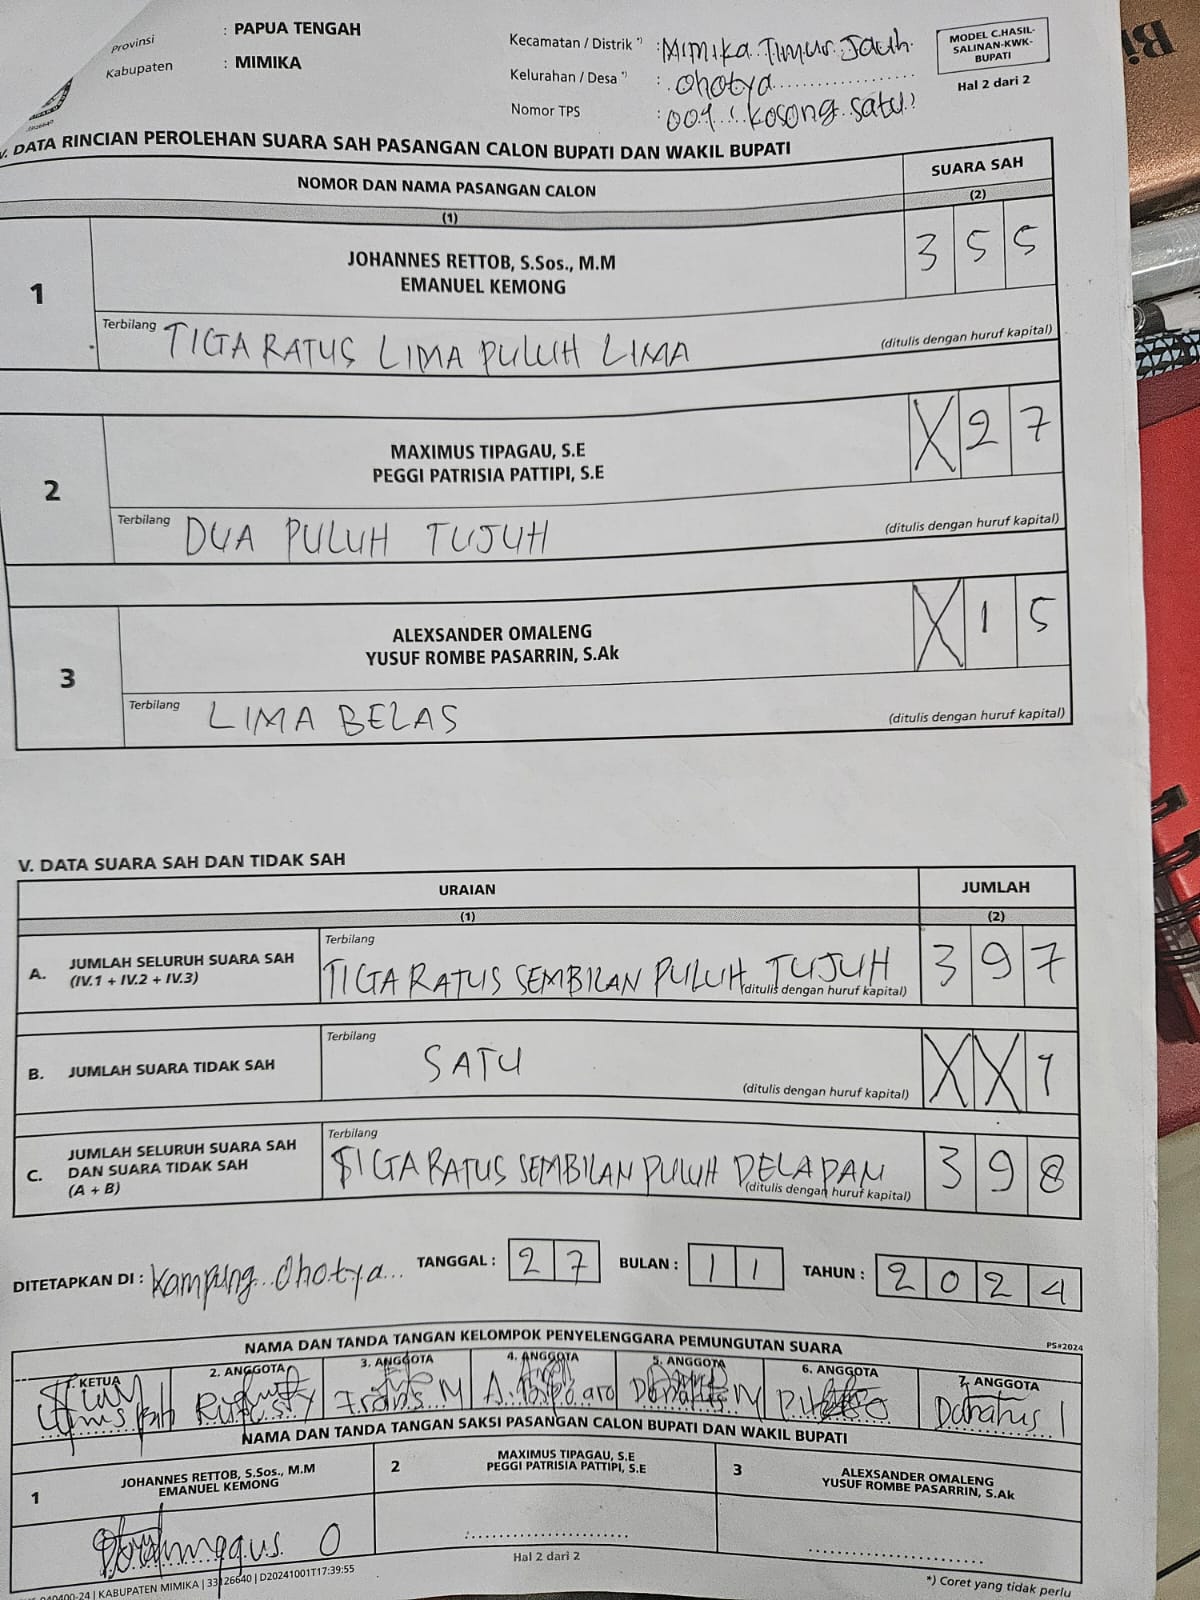 Provinsi : PAPUA TENGAH
Kabupaten : MIMIKA
Kecamatan / Distrik *) : Mimika Timur Jauh
Kelurahan / Desa *) : Ohotya
Nomor TPS : 001 (kosong satu)
MODEL C.HASIL-
SALINAN-KWK-
BUPATI
Hal 2 dari 2
IV. DATA RINCIAN PEROLEHAN SUARA SAH PASANGAN CALON BUPATI DAN WAKIL BUPATI
NOMOR DAN NAMA PASANGAN CALON SUARA SAH
(1) (2)
1 JOHANNES RETTOB, S.Sos., M.M 3 5 5
EMANUEL KEMONG
Terbilang TIGA RATUS LIMA PULUH LIMA (ditulis dengan huruf kapital)
2 MAXIMUS TIPAGAU, S.E X 2 7
PEGGI PATRISIA PATTIPI, S.E
Terbilang DUA PULUH TUJUH (ditulis dengan huruf kapital)
3 ALEXSANDER OMALENG X 1 5
YUSUF ROMBE PASARRIN, S.Ak
Terbilang LIMA BELAS (ditulis dengan huruf kapital)
V. DATA SUARA SAH DAN TIDAK SAH
URAIAN JUMLAH
(1) (2)
A. JUMLAH SELURUH SUARA SAH
(IV.1 + IV.2 + IV.3)
Terbilang
TIGA RATUS SEMBILAN PULUH TUJUH 3 9 7
(ditulis dengan huruf kapital)
B. JUMLAH SUARA TIDAK SAH
Terbilang
SATU X X 1
(ditulis dengan huruf kapital)
C. JUMLAH SELURUH SUARA SAH
DAN SUARA TIDAK SAH
(A + B)
Terbilang
TIGA RATUS SEMBILAN PULUH DELAPAN 3 9 8
(ditulis dengan huruf kapital)
DITETAPKAN DI : Kampung Ohotya TANGGAL : 2 7 BULAN : 1 1 TAHUN : 2 0 2 4
NAMA DAN TANDA TANGAN KELOMPOK PENYELENGGARA PEMUNGUTAN SUARA
PS#2024
1. KETUA 2. ANGGOTA 3. ANGGOTA 4. ANGGOTA 5. ANGGOTA 6. ANGGOTA 7. ANGGOTA
Frans M
NAMA DAN TANDA TANGAN SAKSI PASANGAN CALON BUPATI DAN WAKIL BUPATI
1 JOHANNES RETTOB, S.Sos., M.M
EMANUEL KEMONG
2 MAXIMUS TIPAGAU, S.E
PEGGI PATRISIA PATTIPI, S.E
3 ALEXSANDER OMALENG
YUSUF ROMBE PASARRIN, S.Ak
Hal 2 dari 2
| KABUPATEN MIMIKA | 33126640 | D20241001T17:39:55
*) Coret yang tidak perlu